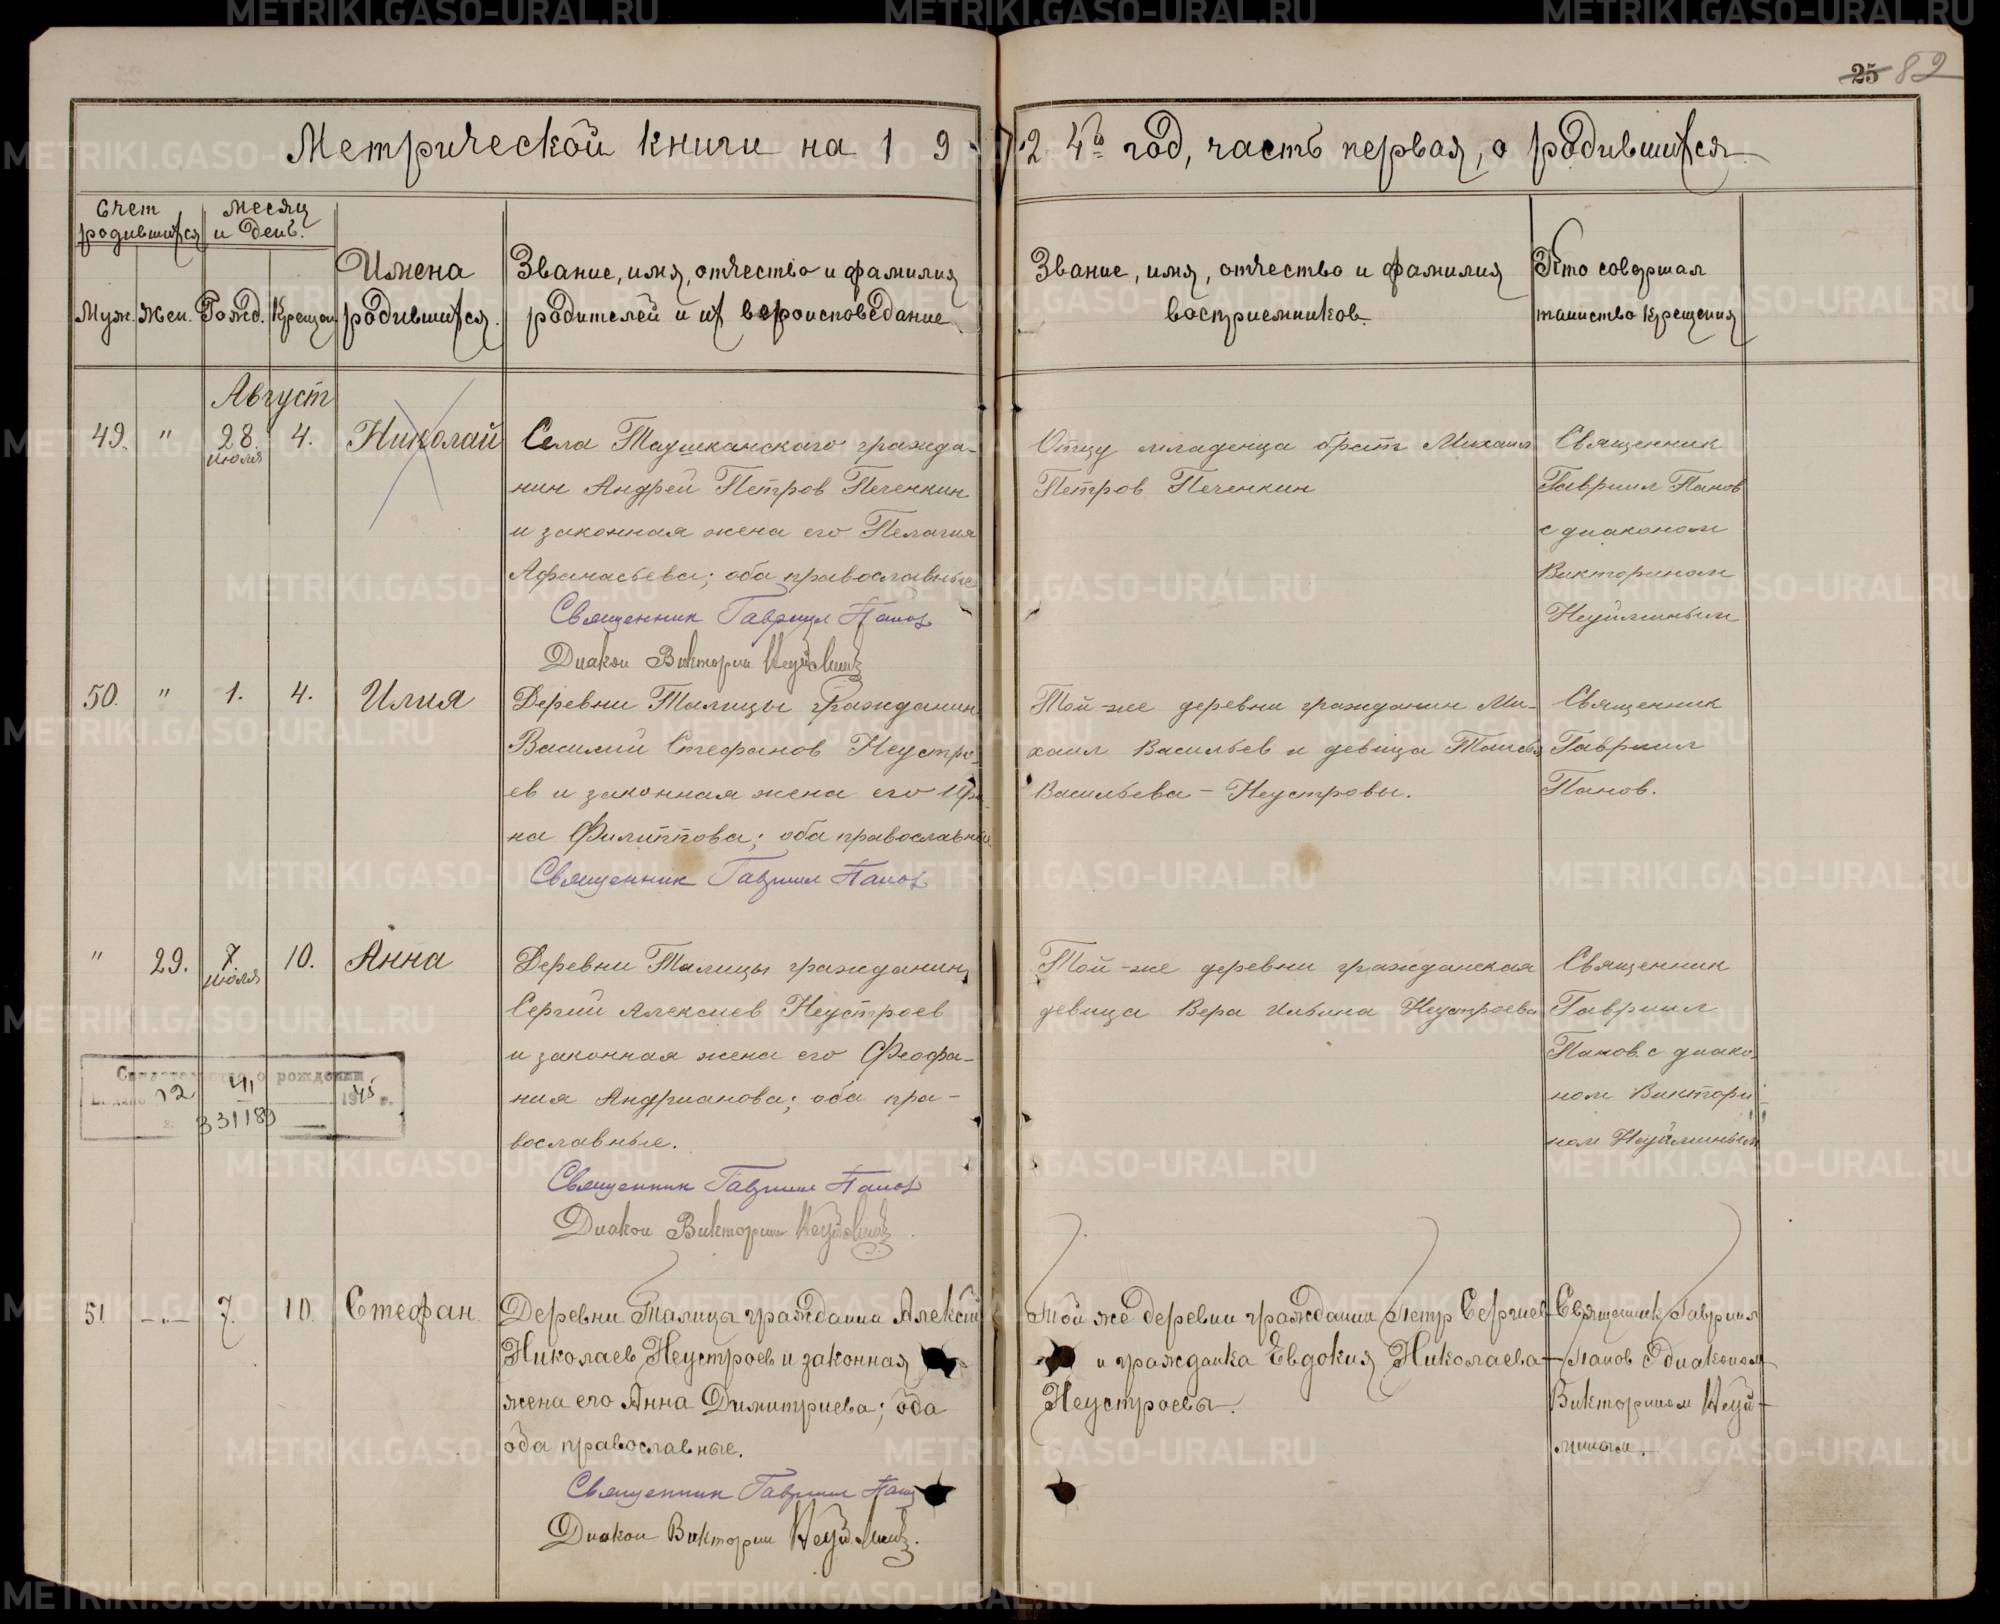 25 82
Метрической книги на 1924й год, часть первая, о родившихся
Счет родившихся
Месяц и день.
Муж. Жен. Рожд. Крещен.
Имена родившихся.
Звание, имя, отчество и фамилия
родителей и их вероисповедание
Звание, имя, отчество и фамилия
восприемников.
Кто совершал
таинство крещения
Август
49. " 28. июля 4. Николай
Села Таушканского гражда-
нин Андрей Петров Печенкин
и законная жена его Пелагия
Афанасьева; оба православные
Священник Гавриил Панов
Диакон Викторин Неуймин
Отцу младенца брат Михаил
Петров Печенкин
Священник
Гавриил Панов
с диаконом
Викторином
Неуйминым
50. " 1. 4. Илия
Деревни Талицы гражданин
Василий Стефанов Неустро-
ев и законная жена его Ири-
на Филиппова; оба православные
Священник Гавриил Панов
Той-же деревни гражданин Ми-
хаил Васильев и девица Таисья
Васильева - Неустровы.
Священник
Гавриил
Панов.
" 29. 7. июля 10. Анна
Деревни Талицы гражданин
Сергий Алексиев Неустроев
и законная жена его Феофа-
ния Андрианова; оба пра-
вославные.
Священник Гавриил Панов
Диакон Викторин Неуймин
Той-же деревни гражданская
девица Вера Ильина Неустроева
Священник
Гавриил
Панов с диако-
ном Виктори-
ном Неуйминым
Свидетельство о рождении
12 41 1945 г.
331189
51. - " - 7. 10. Стефан.
Деревни Талицы гражданин Алексий
Николаев Неустроев и законная
жена его Анна Димитриева; оба
оба православные.
Священник Гавриил Панов
Диакон Викторин Неуймин.
Той же деревни гражданин Петр Сергиев
и гражданка Евдокия Николаева
Неустроевы.
Священник Гавриил
Панов с диаконом
Викторином Неуй-
миным.
METRIKI.GASO-URAL.RU